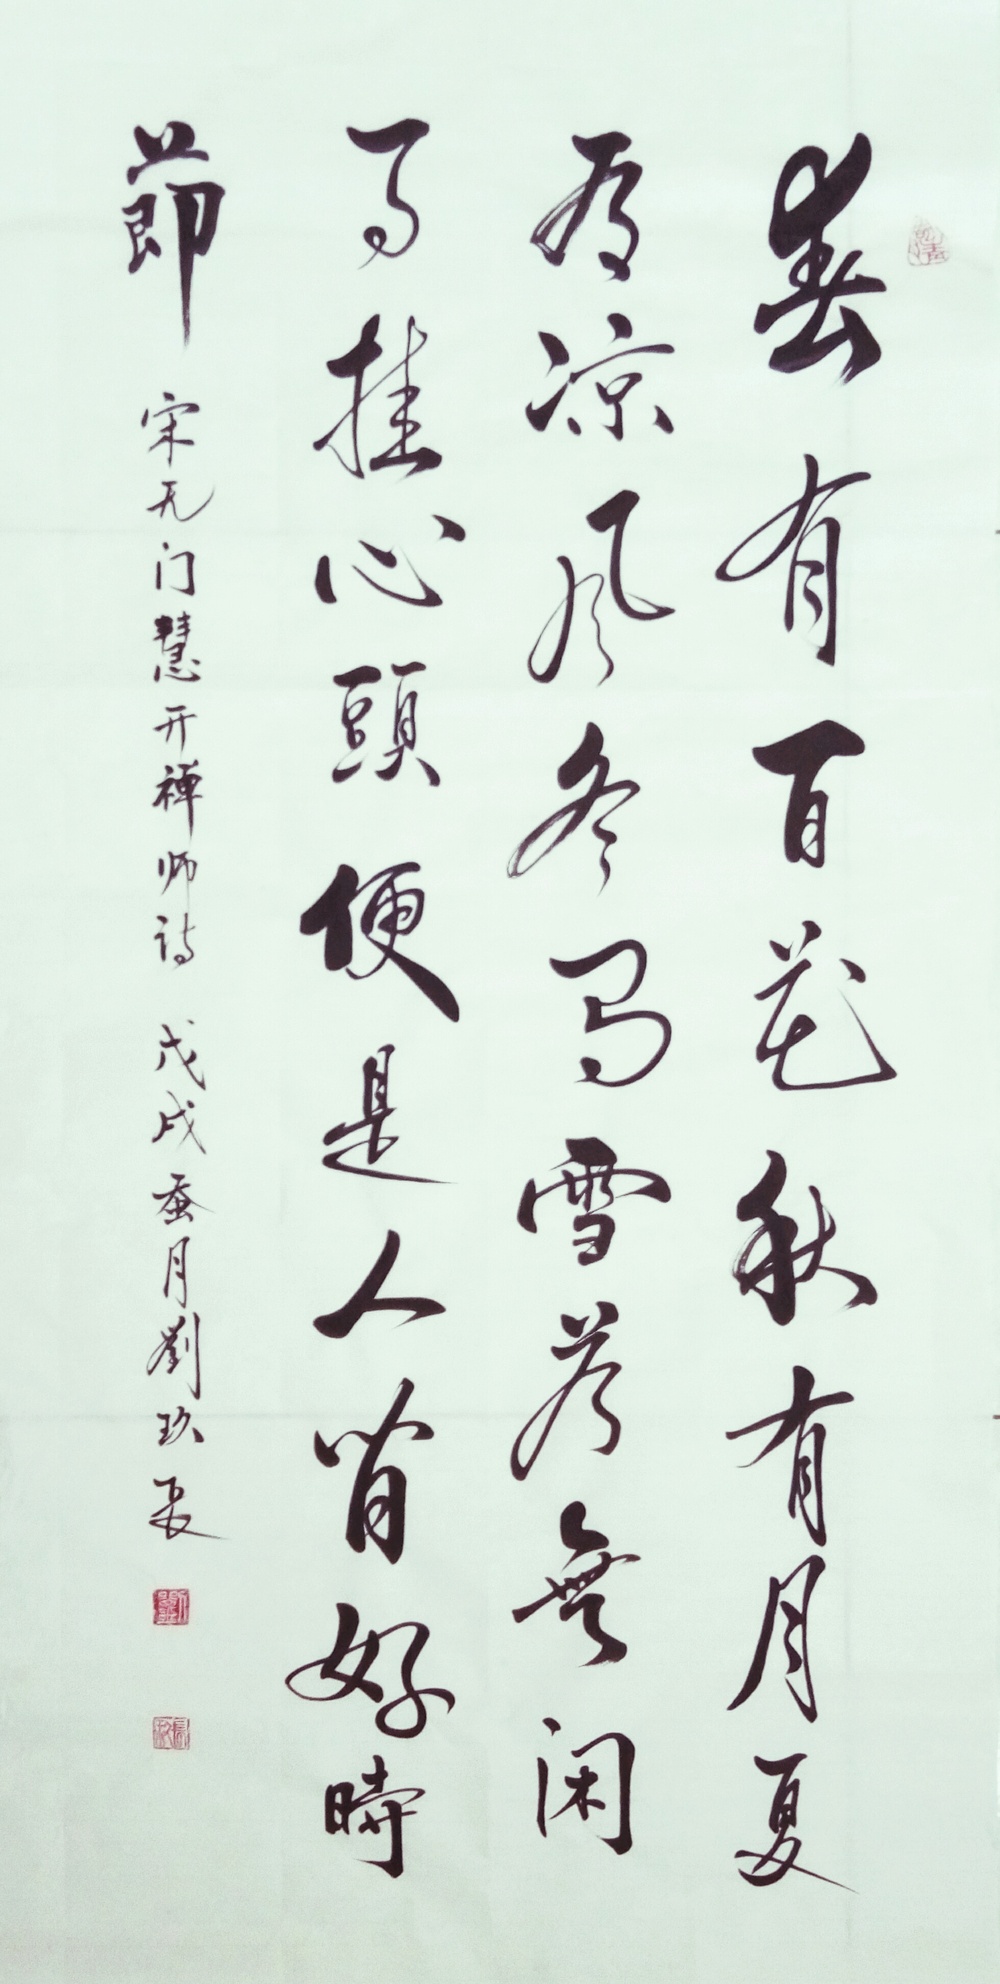 春有百花秋有月夏
有凉风冬有雪若無闲
事挂心頭便是人間好時
節
宋无门慧开禪师诗 戊戌蚕月劉玖長